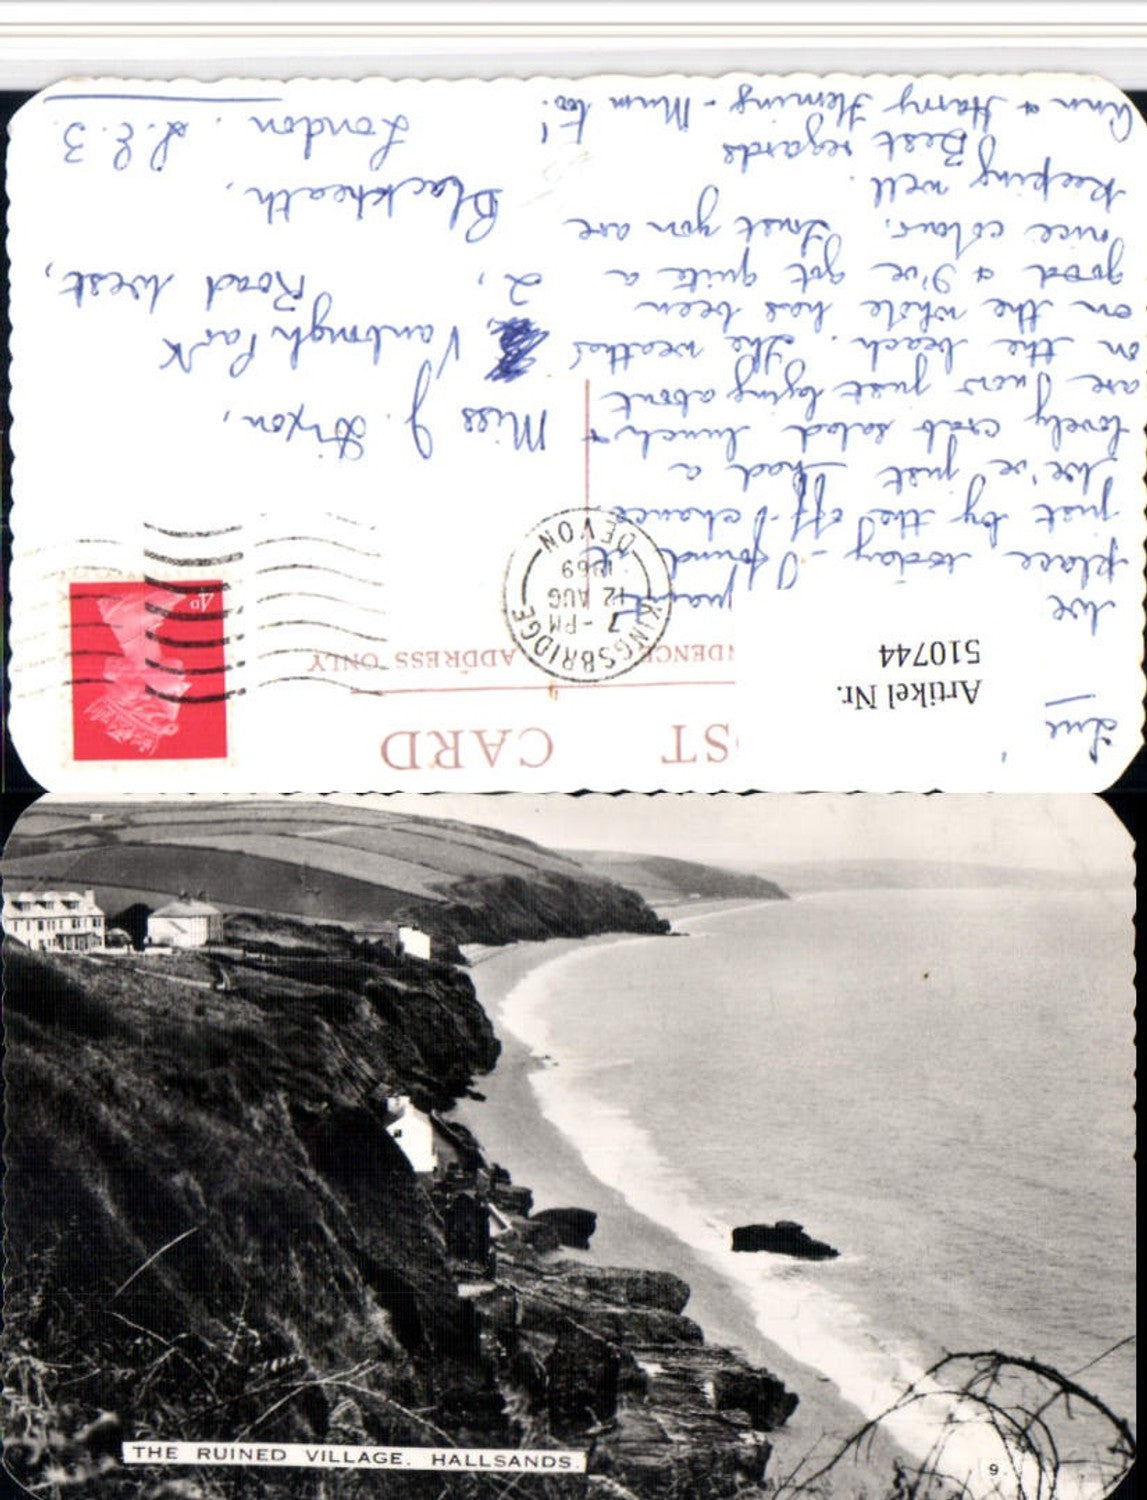 POST CARD
ADDRESS ONLY
Artikel Nr.
510744
KINGSBRIDGE
7 - PM
12 AUG
1969
DEVON
4D
Tue
We
place today - I found it
just by the off-chance
We've just had a
lovely crab salad lunch &
are now just lying about
on the beach. The weather
on the whole has been
good & I've got quite a
nice colour. Trust you are
keeping well.
Best regards
Ann & Harry Fleming - Mum too!
Miss J. Dixon,
2, Vanbrugh Park
Road West,
Blackheath,
London. S.E.3.
THE RUINED VILLAGE. HALLSANDS.
9.